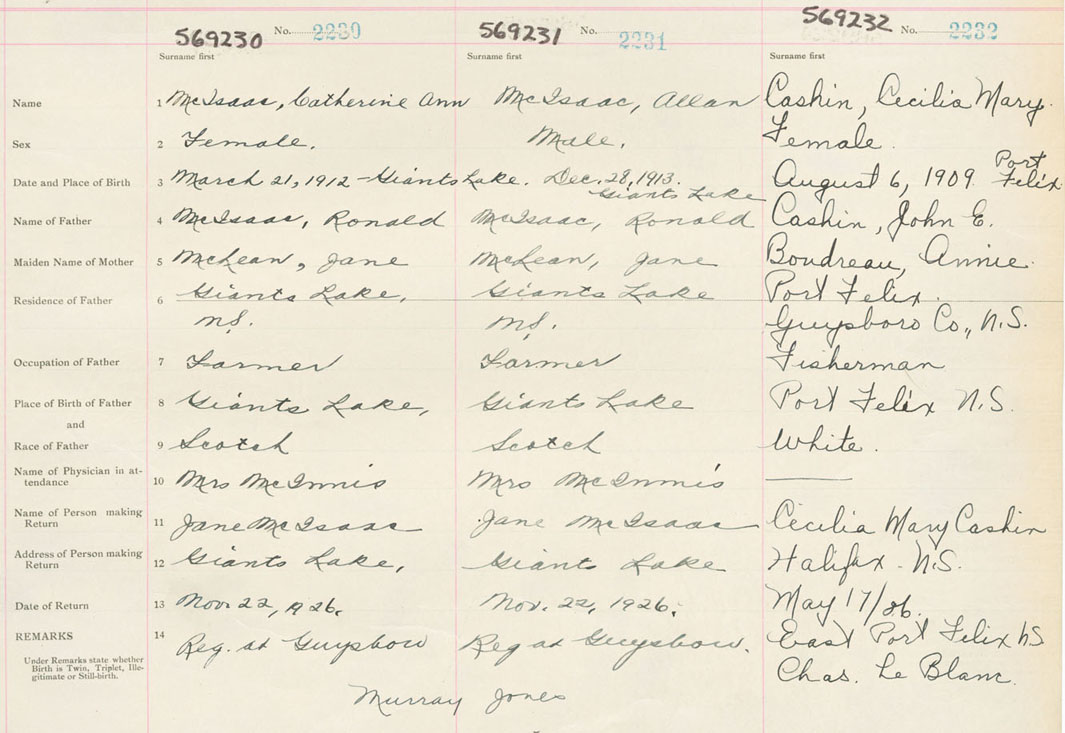 569230 No. 2230 569231 No. 2231 569232 No. 2232
Surname first Surname first Surname first
Name 1 McIsaac, Catherine Ann McIsaac, Allan Cashin, Cecilia Mary.
Sex 2 Female. Male. Female.
Date and Place of Birth 3 March 21, 1912 - Giants Lake. Dec. 28, 1913. Giants Lake August 6, 1909 Port Felix.
Name of Father 4 McIsaac, Ronald McIsaac, Ronald Cashin, John E.
Maiden Name of Mother 5 McLean, Jane McLean, Jane Boudreau, Annie.
Residence of Father 6 Giants Lake, Giants Lake Port Felix.
N.S. N.S. Guysboro Co., N.S.
Occupation of Father 7 Farmer Farmer Fisherman
Place of Birth of Father 8 Giants Lake, Giants Lake Port Felix N.S.
and
Race of Father 9 Scotch Scotch White.
Name of Physician in at-
tendance 10 Mrs McInnis Mrs McInnis
Name of Person making
Return 11 Jane McIsaac Jane McIsaac Cecilia Mary Cashin
Address of Person making
Return 12 Giants Lake, Giants Lake Halifax - N.S.
Date of Return 13 Nov. 22, 1926. Nov. 22, 1926. May 17/26.
REMARKS 14 Reg. at Guysboro Reg at Guysboro. East Port Felix NS
Under Remarks state whether
Birth is Twin, Triplet, Ille-
gitimate or Still-birth.
Chas. Le Blanc.
Murray Jones